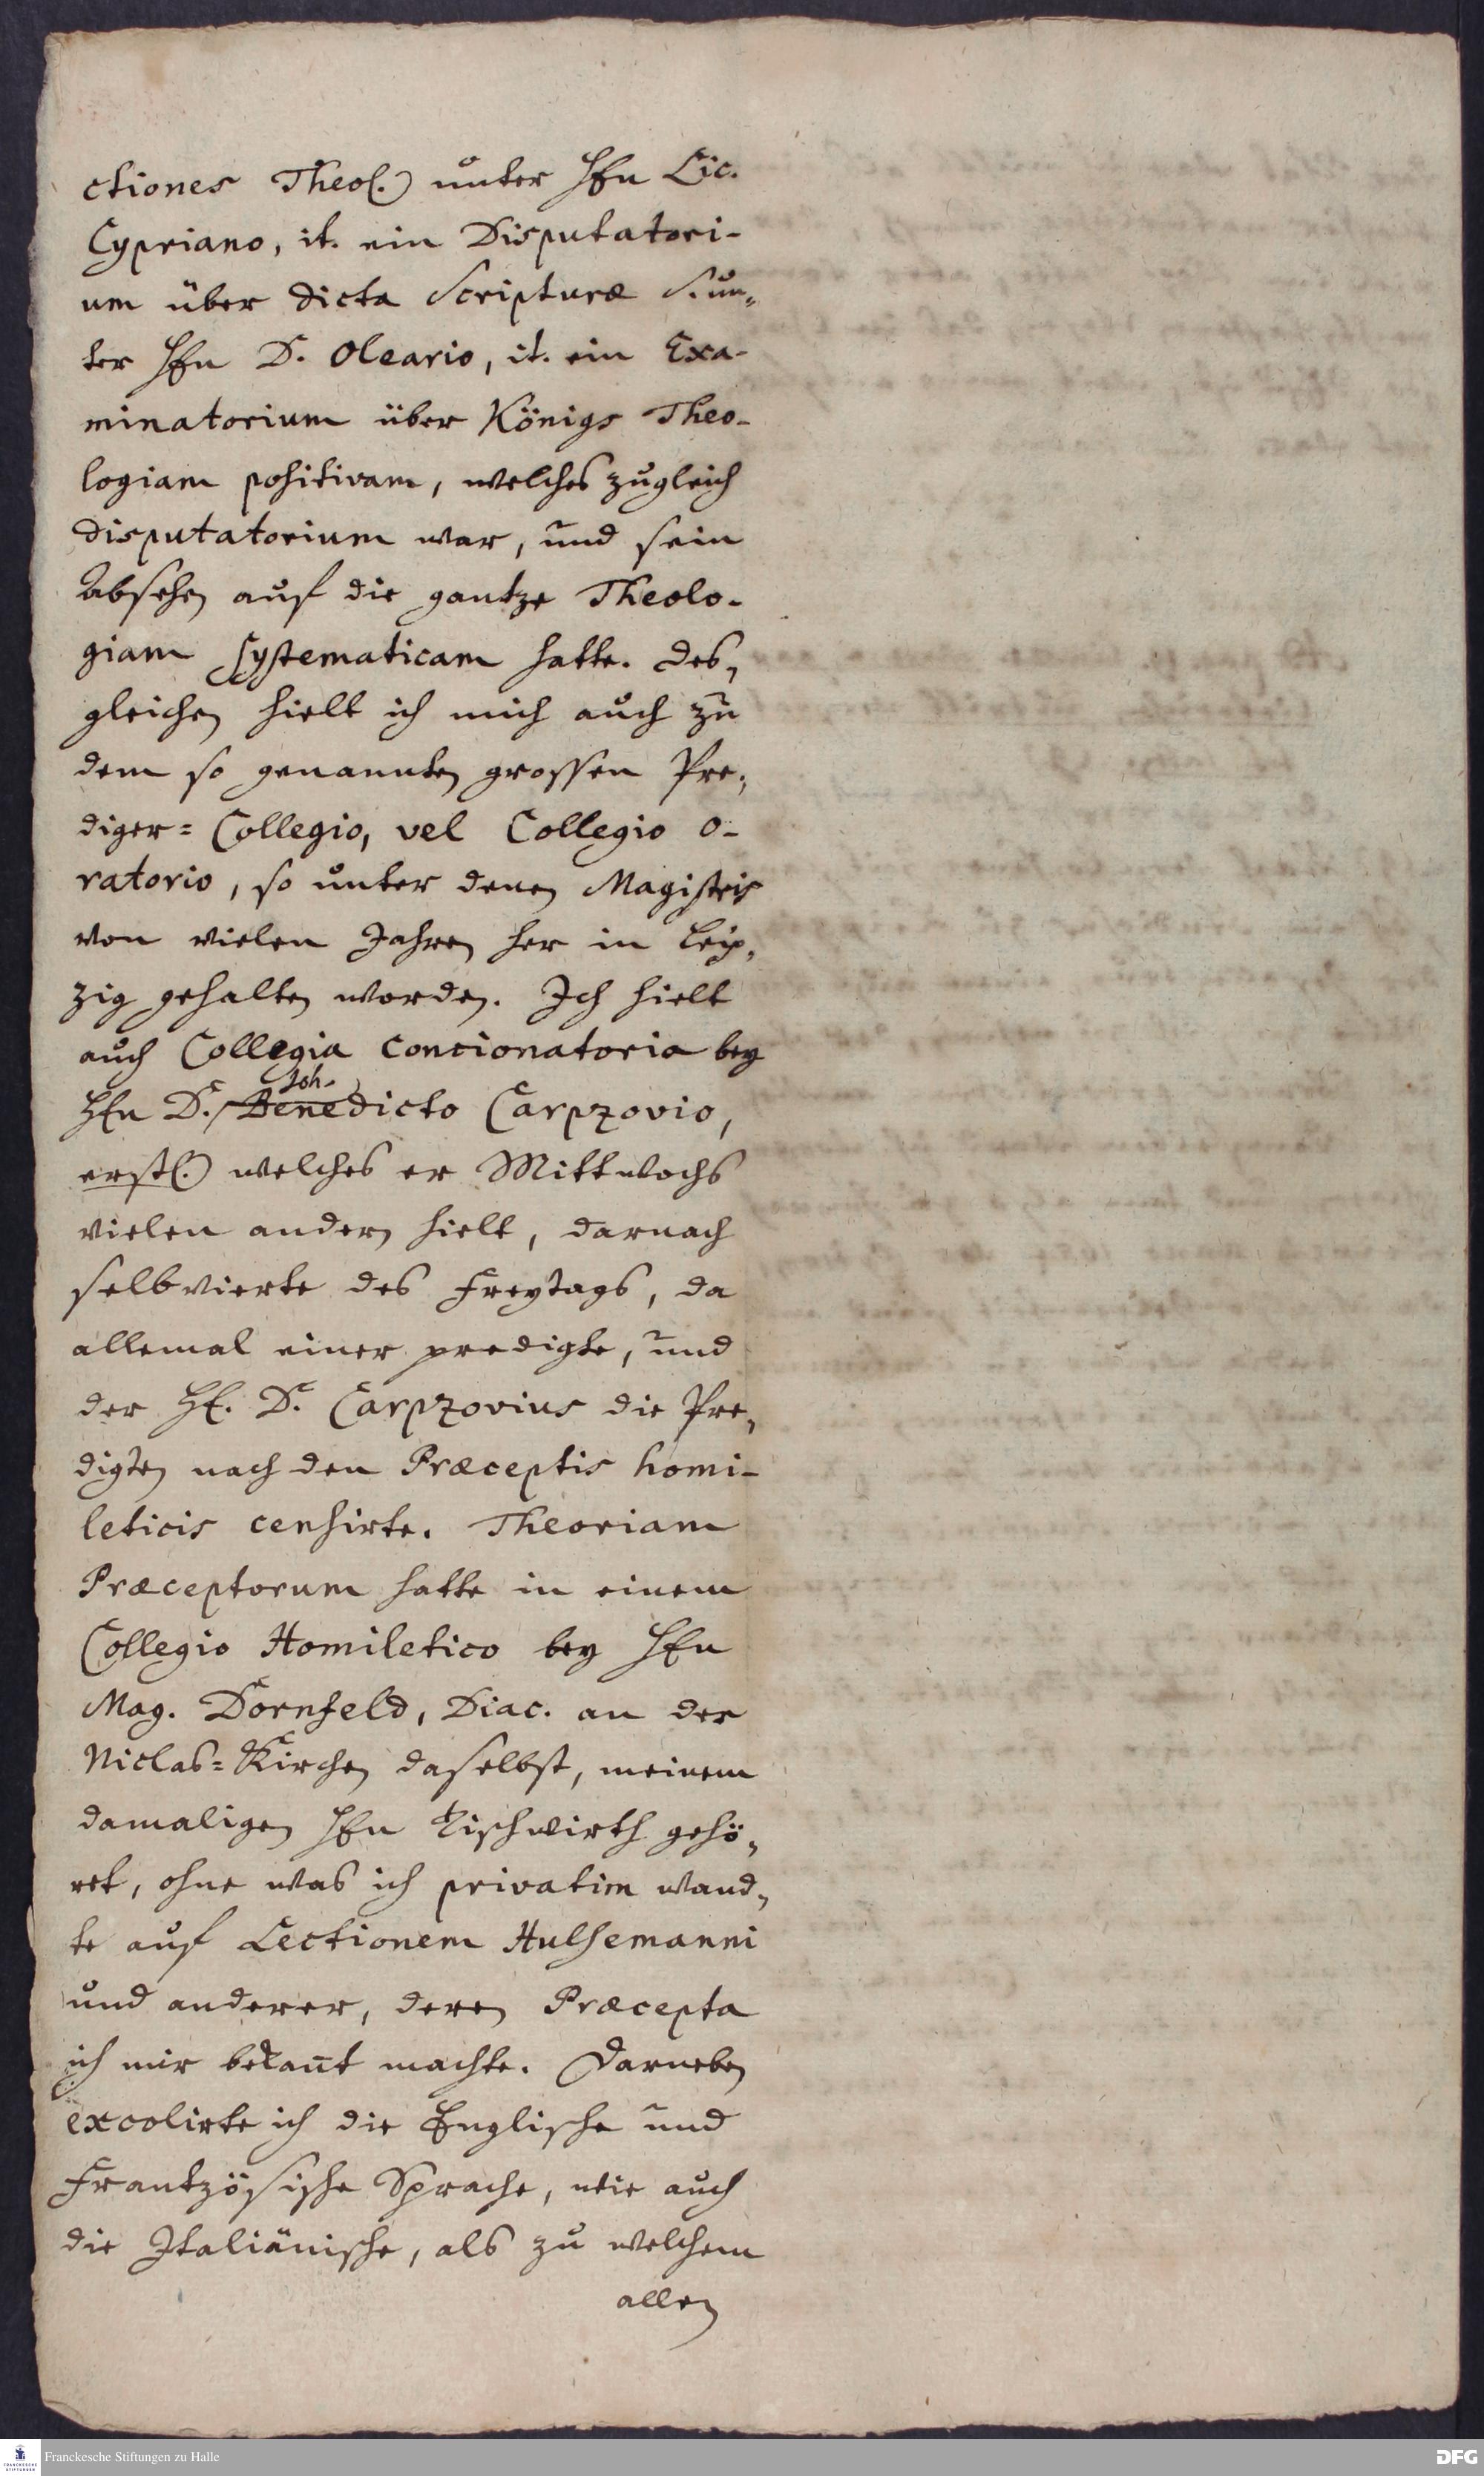 ctiones Theol. unter Hℓn Lic.
Cypriano, it. ein Disputatori-
um über dicta Scripturæ S. un-
ter Hℓn D. Oleario, it. ein Exa-
minatorium über Königs Theo-
logiam positivam, welches zugleich
disputatorium war, und sein
Absehen auf die gantze Theolo-
giam systematicam hatte. Des-
gleichen hielt ich mich auch zu
dem so genannten grossen Pre-
diger= Collegio, vel Collegio o-
ratorio, so unter denen Magistris
von vielen Jahren her in Leip-
zig gehalten worden. Ich hielt
auch Collegia concionatoria bey
Joh.
Hℓn D. Benedicto Carpzovio,
erstl. welches er Mittwochs
vielen andern hielt, darnach
selbvierte des Freytags, da
allemal einer predigte, und
der Hℓ. D. Carpzovius die Pre-
digten nach den Præceptis homi-
leticis censirte. Theoriam
Præceptorum hatte in einem
Collegio Homiletico bey Hℓn
Mag. Dornfeld, Diac. an der
Niclas=Kirchen daselbst, meinem
damaligen Hℓn Tischwirth gehö-
ret, ohne was ich privatim wand-
te auf Lectionem Hulsemanni
und anderer, deren Præcepta
ich mir bekañt machte. Darneben
excolirte ich die Englische und
Frantzösische Sprache, wie auch
die Italiänische, als zu welchem
allen
Franckesche Stiftungen zu Halle
FRANCKESCHE STIFTUNGEN
DFG